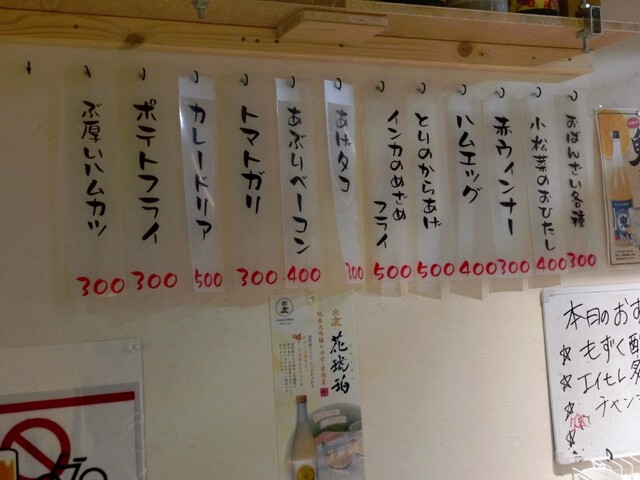 おばんざい各種
300
小松菜のおひたし
400
赤ウィンナー
300
ハムエッグ
400
とりのからあげ
500
インカのめざめ
フライ
500
あげタコ
300
あぶりベーコン
400
トマトガリ
300
カレードリア
500
ポテトフライ
300
ぶ厚いハムカツ
300
花琥珀
本日のおす
☆ もずく酢
☆ エイヒレ
☆ チャン
☆